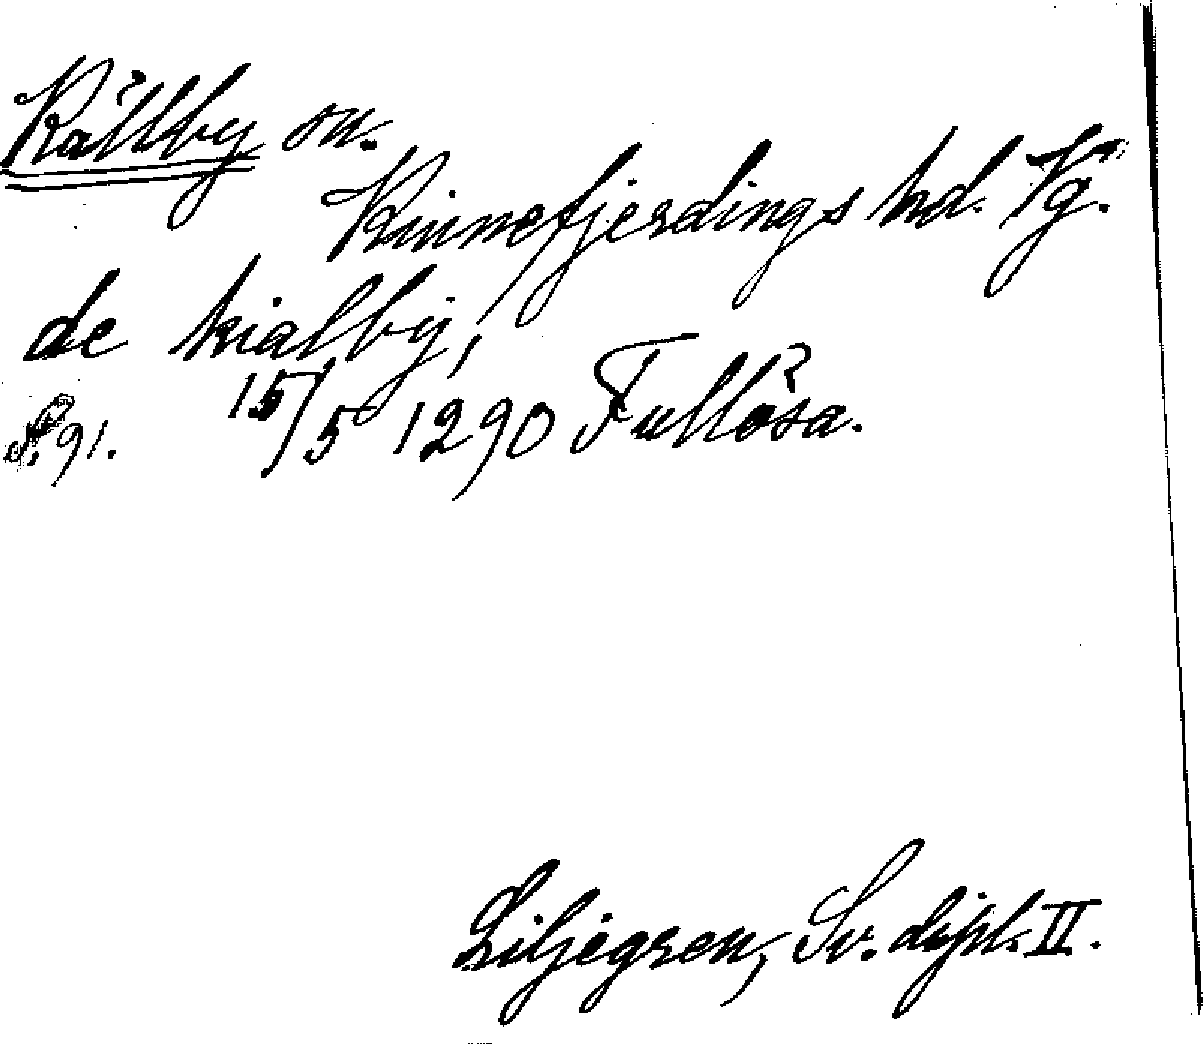 Källby sn.
Kinnefjerdings hd. Vg.
de kialby,
S. 91. 15/5 1290 Fullösa.
Liljegren, Sv. dipl. II.